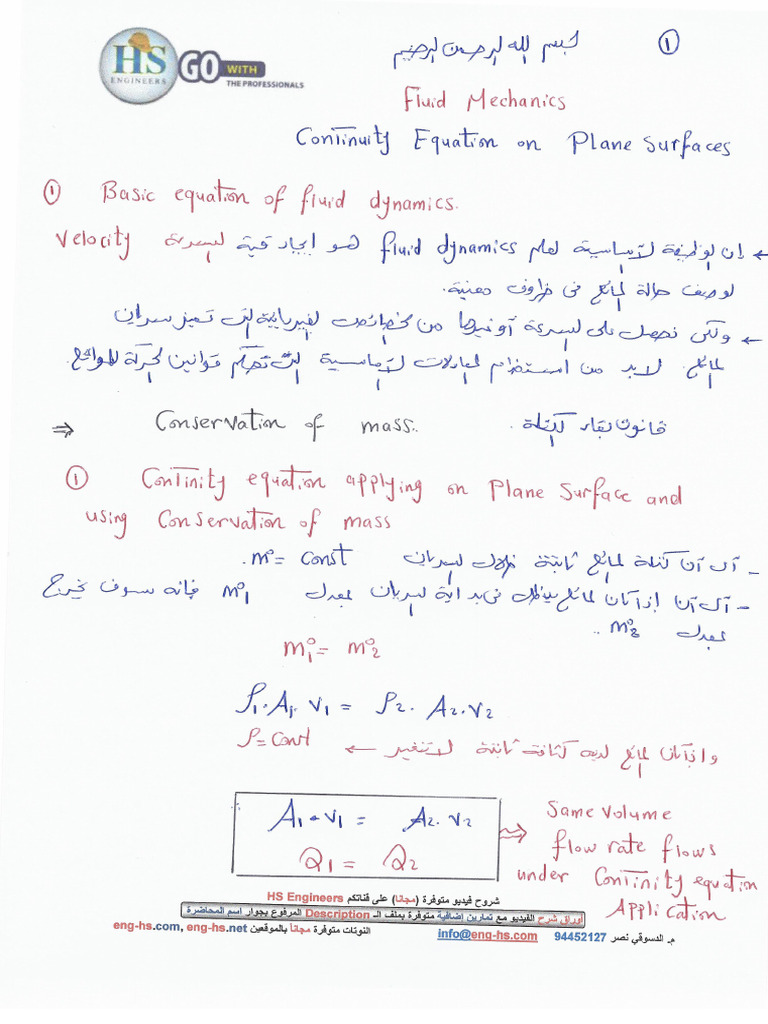 HS
ENGINEERS
GO WITH
THE PROFESSIONALS
بسم الله الرحمن الرحيم
1
Fluid Mechanics
Continuity Equation on Plane Surfaces
① Basic equation of fluid dynamics.
← إن الوظيفة الأساسية لعلم fluid dynamics هو إيجاد قيمة السرعة Velocity
لوصف حالة المائع فى ظروف معينة.
← ولكى نحصل على السرعة أو غيرها من الخصائص الفيزيائية التى تميز سريان
المائع. لابد من استخدام المعادلات الأساسية التى تحكم قوانين الحركة للموائع.
⇒ Conservation of mass. قانون بقاء الكتلة.
① Continity equation applying on Plane Surface and
using Conservation of mass
- أى أن كتلة المائع ثابتة خلال السريان m° = Const.
- أى أن إذا كان المائع يدخل فى بداية السريان بمعدل m°1 فإنه سوف يخرج
بمعدل m°2.
m°1 = m°2
ρ1. A1. V1 = ρ2. A2. V2
وإذا كان المائع لديه كثافة ثابتة لا تتغير ← ρ = Const
∴ A1 . V1 = A2 . V2
Q1 = Q2
⇒ Same Volume
flow rate flows
under Continity equation
Application
شروح فيديو متوفرة (مجانا) على قناتكم HS Engineers
أوراق شرح الفيديو مع تمارين إضافية متوفرة بملف الـ Description المرفوع بجوار اسم المحاضرة
النوتات متوفرة مجاناً بالموقعين eng-hs.com, eng-hs.net
م. الدسوقي نصر 94452127 info@eng-hs.com